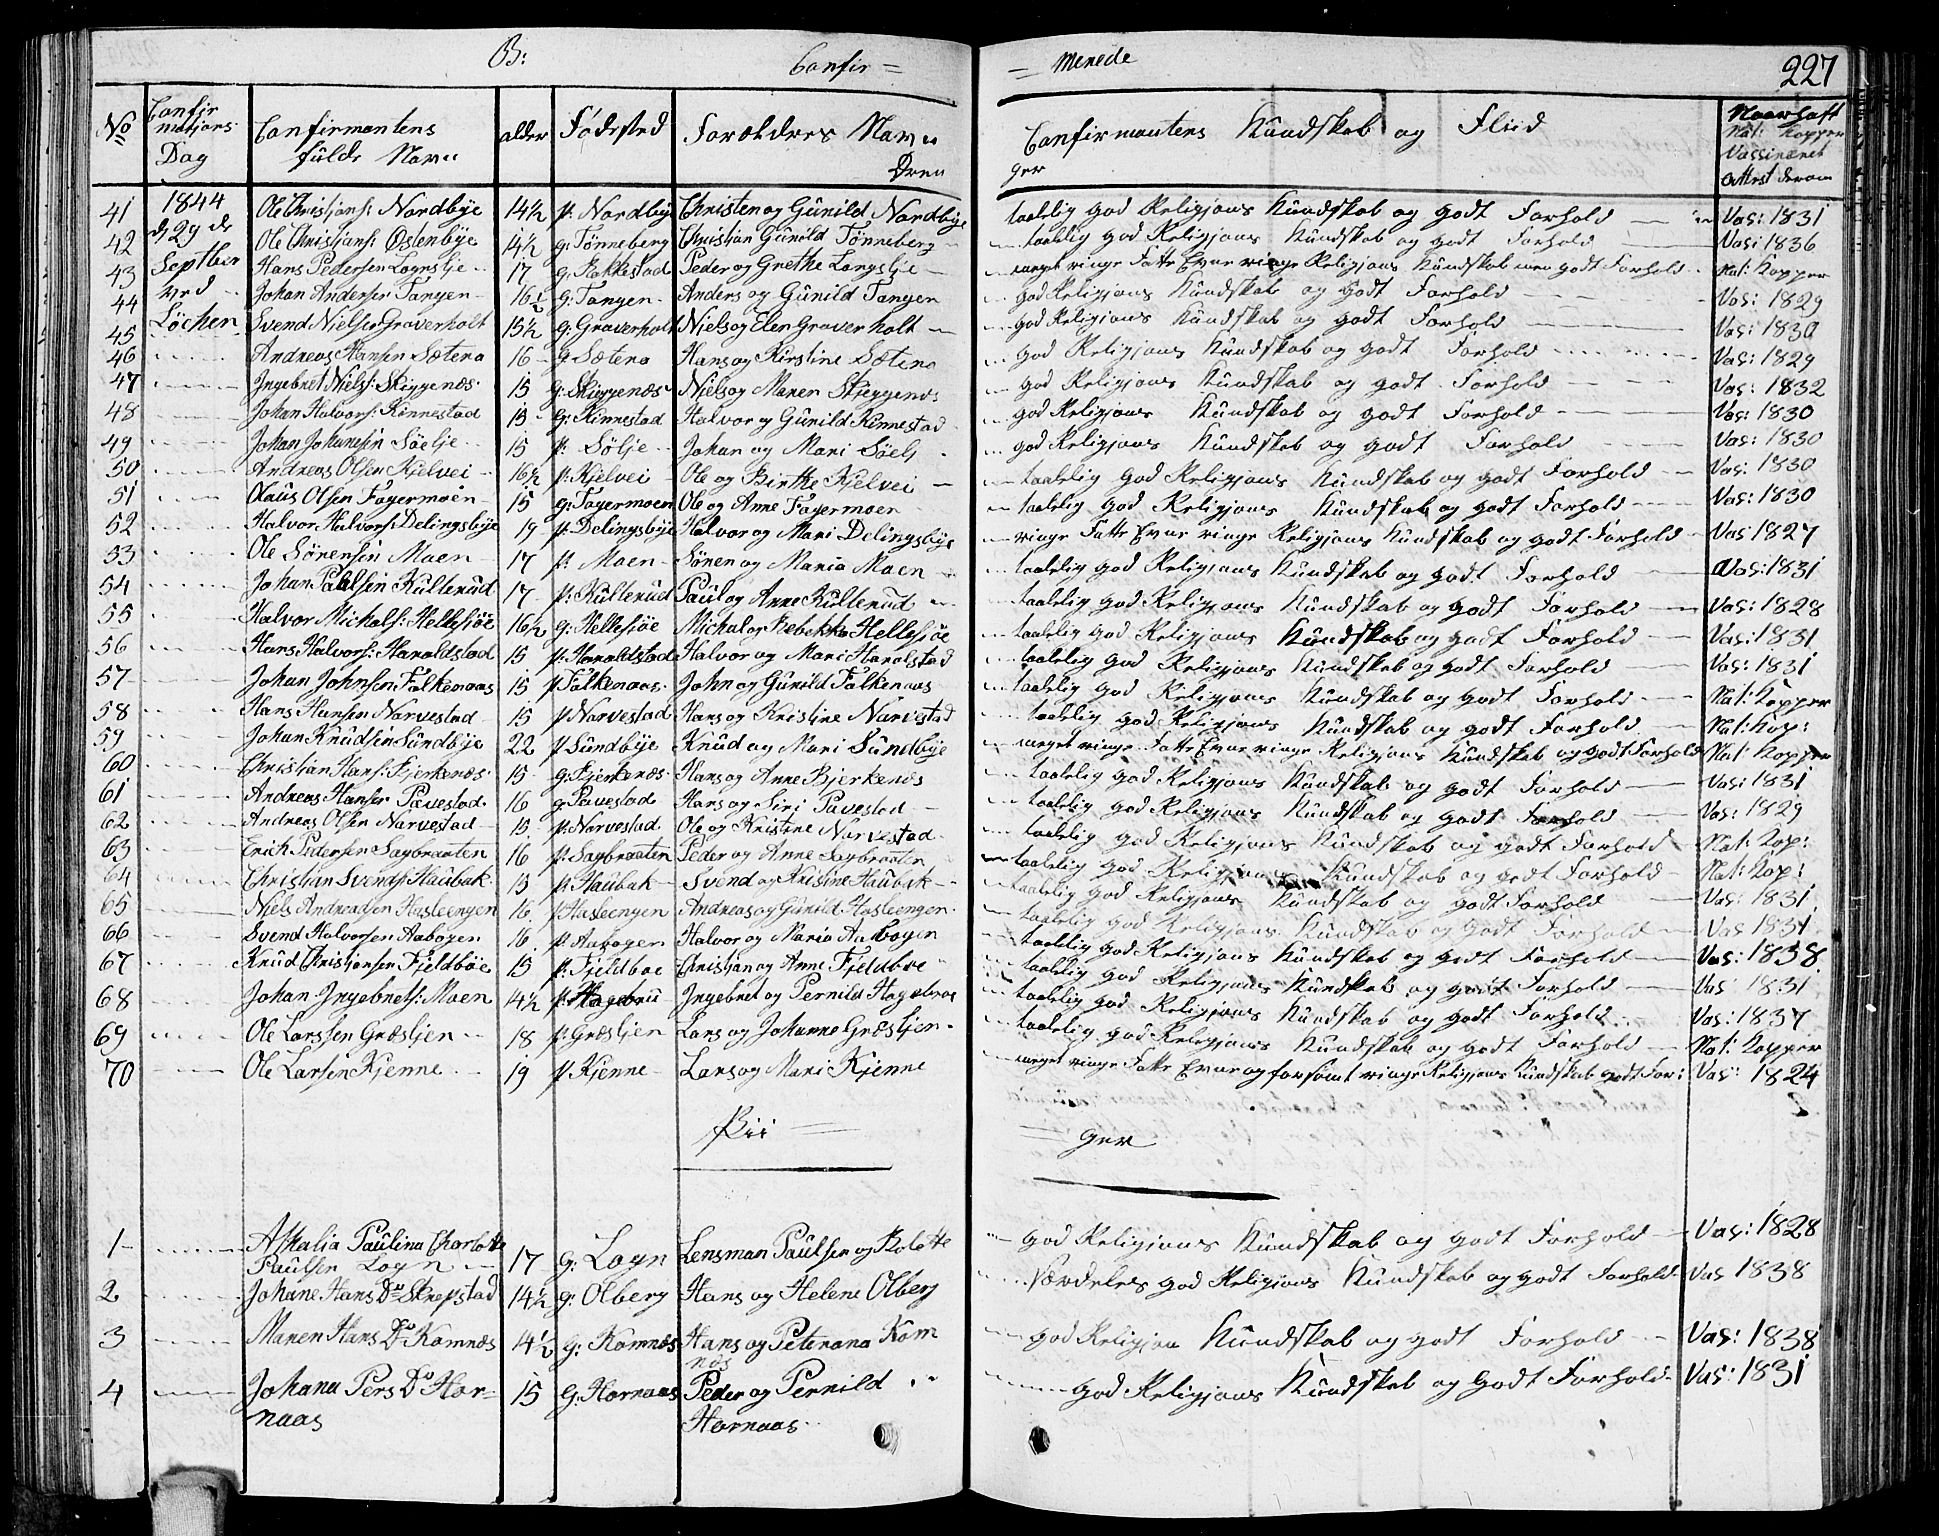 B: Confir = = merede 227
No Confirmatjons Dag Confirmantens fulde Navn alder Fødested Foræfdres Navn Confirmantens Kundskab og Fliid Naarhaft Nat: Kopper Vassineret attest derom
Dren ger
41 1844 Ole Christjans: Nordbye 14½ p: Nordby Christen og Gunild Nordbye taalelig god Religjons Kundskab og godt Forhold Vas: 1831
42 d 29 de Ole Christjans: Østenbye 14½ g: Tønneberg Christjan Gunild Tønneberg taalelig god Religjons Kundskab og godt Forhold Vas: 1836
43 Septber Hans Pedersen 17 g: Rakkestad Peder og Grethe meget ringe Fatte Evne ringe Religjons Kundskab men godt Forhold Nat: Kopper
44 ved Johan Andersen Tangen 16½ g: Tangen Anders og Gunild Tangen god Religjons Kundskab og godt Forhold Vas: 1829
45 Løchen Svend Nielsen Graverholt 15½ g: Graverholt Niels og Elen Graverholt god Religjons Kundskab og godt Forhold Vas: 1830
46 Andreas Hansen Sætera 16 g: Sætera Hans og Kirstine Sætera god Religjons Kundskab og godt Forhold Vas: 1829
47 Ingebret Niels: Skiggenæs 15 g: Skieggenæs Niels og Maren Skjeggenæs god Religjons Kundskab og godt Forhold Vas: 1832
48 Johan Halvors: Kinnestad 15 g: Kinnestad Halvor og Gunild Kinnestad god Religjons Kundskab og godt Forhold Vas: 1830
49 Johan Johanesen Søelje 15 p: Sølje Johan og Mari Søelj god Religjons Kundskab og godt Forhold Vas: 1830
50 Andreas Olsen Kjelvei 16½ p: Kjelvei Ole og Birthe Kjelvei taalelig god Religjons Kundskab og godt Forhold Vas: 1830
51 Olaus Olsen Fagermoen 15 g: Fagermoen Ole og Anne Fagermoen taalelig god Religjons Kundskab og godt Forhold Vas: 1830
52 Halvor Halvors: Delingsbye 19 p: Delingsbye Halvor og Mari Delingsbye ringe Fatte Evne ringe Religjons Kundskab og godt Forhold Vas 1827
53 Ole Sørensen Moen 17 p: Moen Sören og Maria Moen taalelig god Religjons Kundskab og godt Forhold Vas: 1831
54 Johan Paulsen Kulterud 17 p: Kulterud Paul og Anne Kulterud taalelig god Religjons Kundskab og godt Forhold Vas: 1828
55 Halvor Michals: Hellesjøe 16½ g: Hellesjøe Michal og Rebekka Hellesjøe taalelig god Religjons Kundskab og godt Forhold Vas: 1831
56 Hans Halvors: Haroldstad 15 p: Haroldstad Halvor og Mari Harolstad taalelig god Religjons Kundskab og godt Forhold Vas: 1831
57 Johan Johnsen Falkenaas 15 p Falkenaas John og Gunild Falkenaas taalelig god Religjons Kundskab og godt Forhold Nat: Kopper
58 Hans Hansen Narvestad 15 p Narvestad Hans og Kristine Narvestad taalelig god Religjons Kundskab og godt Forhold Nat: Kop:
59 Johan Knudsen Sundbye 22 p Sundbye Knud og Mari Sundbye meget ringe Fatte Evne ringe Religjons Kundskab og godt Forhold Nat: Kopper
60 Christjan Hans: Bjerkenæs 15 g: Bjerkenæs Hans og Anne Bjerkenæs taalelig god Religjons Kundskab og godt Forhold Vas: 1831
61 Andreas Hansen Pavestad 16 g: Pavestad Hans og Siri Pavestad taalelig god Religjons Kundskab og godt Forhold Vas: 1829
62 Andreas Olsen Narvestad 15 p: Narvestad Ole og Kristine Narvestad taalelig god Religjons Kundskab og godt Forhold Nat: Kop:
63 Erich Pedersen Sagbraaten 16 p: Sagbraaten Peder og Anne Sagbraaten taalelig god Religjons Kundskab og godt Forhold Nat: Kop:
64 Christian Svends: Haubak 15 p: Haubak Svend og Kristine Haubak taalelig god Religjons Kundskab og godt Forhold Vas: 1831
65 Niels Andreasen Hasleengen 16 p Hasleengen Andreas og Gunild Hasleengen taalelig god Religjons Kundskab og godt Forhold Vas 1831
66 Svend Halvorsen Aabogen 16 p Aabogen Halvor og Maria Aabogen taalelig god Religjons Kundskab og godt Forhold Vas: 1838
67 Knud Christjansen Fjeldbøe 15 p: Fjeldbøe Christjan og Anne Fjeldbøe taalelig god Religjons Kundskab og godt Forhold Vas 1831
68 Johan Ingebrets: Moen 14½ p: Hagebru Ingebret og Pernild Hagebroe taalelig god Religjons Kundskab og godt Forhold Vas: 1837
69 Ole Larssen Græsljen 18 p: Græsljen Lars og Johanne Græsljen taalelig god Religjons Kundskab og godt Forhold Nat: Kopper
70 Ole Larsen Kjenne 19 p: Kjenne Lars og Mari Kjenne meget ringe Fatte Evne og forsømt ringe Religjons Kundskab godt For: Vas: 1824
Pii = = ger
1 Athalia Paulina Charlotte Paulsen Løgn 17 g: Løgn Lensman Paulsen og Bolette god Religjons Kundskab og godt Forhold Vas: 1828
2 Johane Hans Dr Skrepstad 14½ g: Olberg Hans og Helene Olberg Særdeles god Religjons Kundskab og godt Forhold Vas 1838
3 Maren Hans Dr Komnæs 14½ g: Komnæs Hans og Peternana Komnæs god Religjon Kundskab og godt Forhold Vas: 1838
4 Johana Pers Dr Hornaas 15 g: Hornaas Peder og Pernild Hornaas god Religjons Kundskab og godt Forhold Vas: 1831